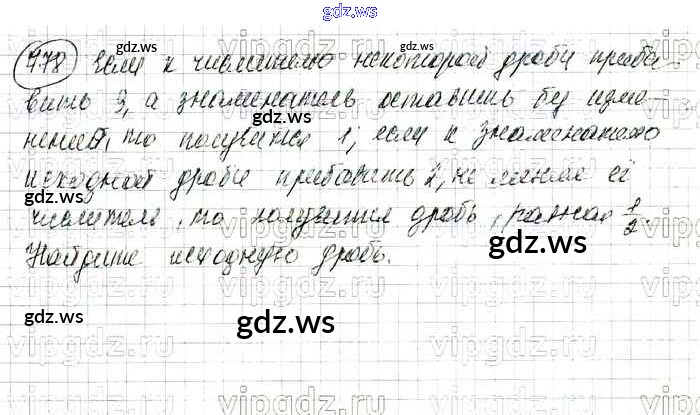 gdz.ws
778 Если к числителю некоторой дроби приба-
вить 3, а знаменатель оставить без изме-
нений, то получится 1; если к знаменателю
исходной дроби прибавить 2, не меняя её
числитель, то получится дробь, равная 1/2.
Найдите исходную дробь.
gdz.ws
gdz.ws
gdz.ws
gdz.ws
gdz.ws
gdz.ws
gdz.ws
gdz.ws